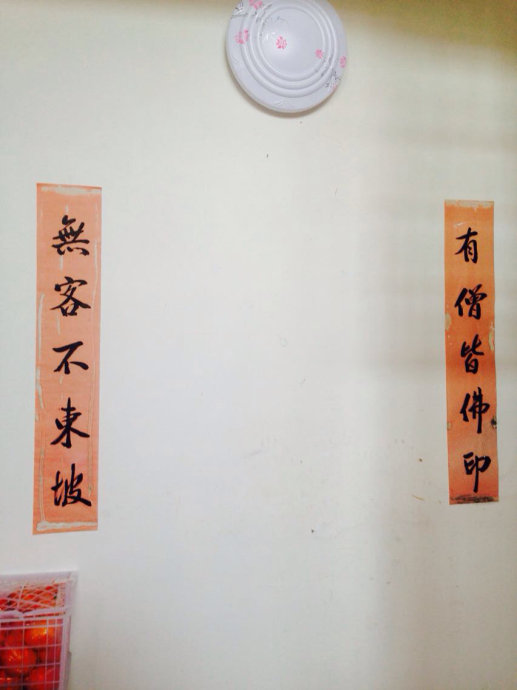 有僧皆佛印
無客不東坡